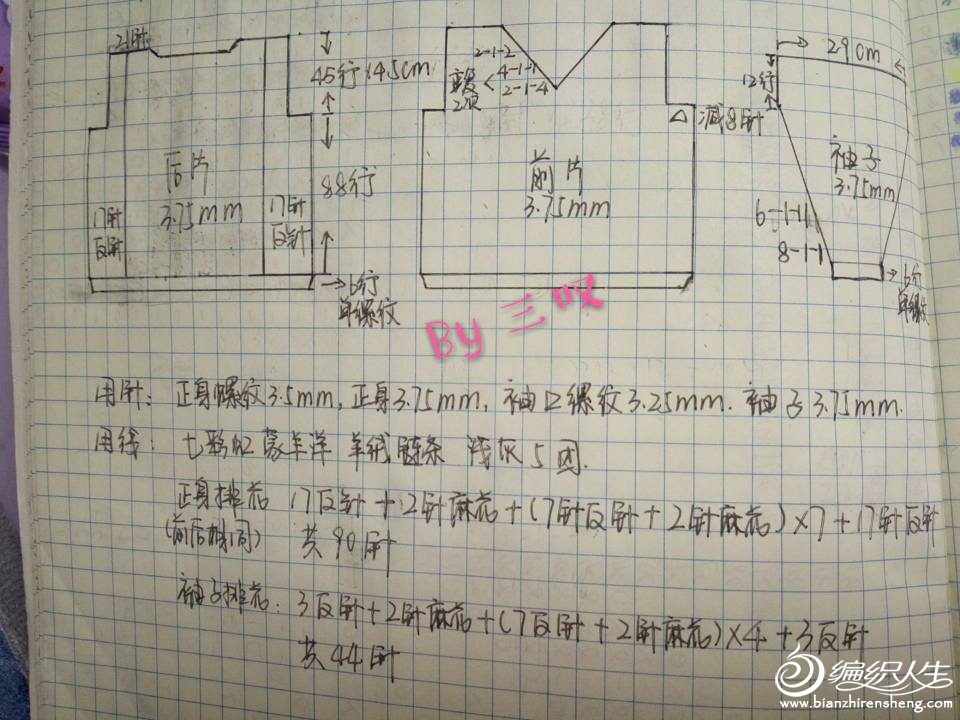 21针
45行 14.5cm
88行
后片
3.75mm
17针
反针
17针
反针
6行
单螺纹
2-1-2
4-1-1
2-1-4
重复
2次
减8针
前片
3.75mm
29cm
12行
袖子
3.75mm
6-1-11
8-1-1
6行
单螺纹
By 三叹
用针: 正身螺纹3.5mm, 正身3.75mm, 袖口螺纹3.25mm. 袖子3.75mm.
用线: 七彩虹蒙羊洋 羊绒链条 浅灰5团.
正身排花 17反针+2针麻花+(7针反针+2针麻花)×7+17针反针
(前后相同) 共90针
袖子排花: 3反针+2针麻花+(7反针+2针麻花)×4+3反针
共44针
编织人生
www.bianzhirensheng.com